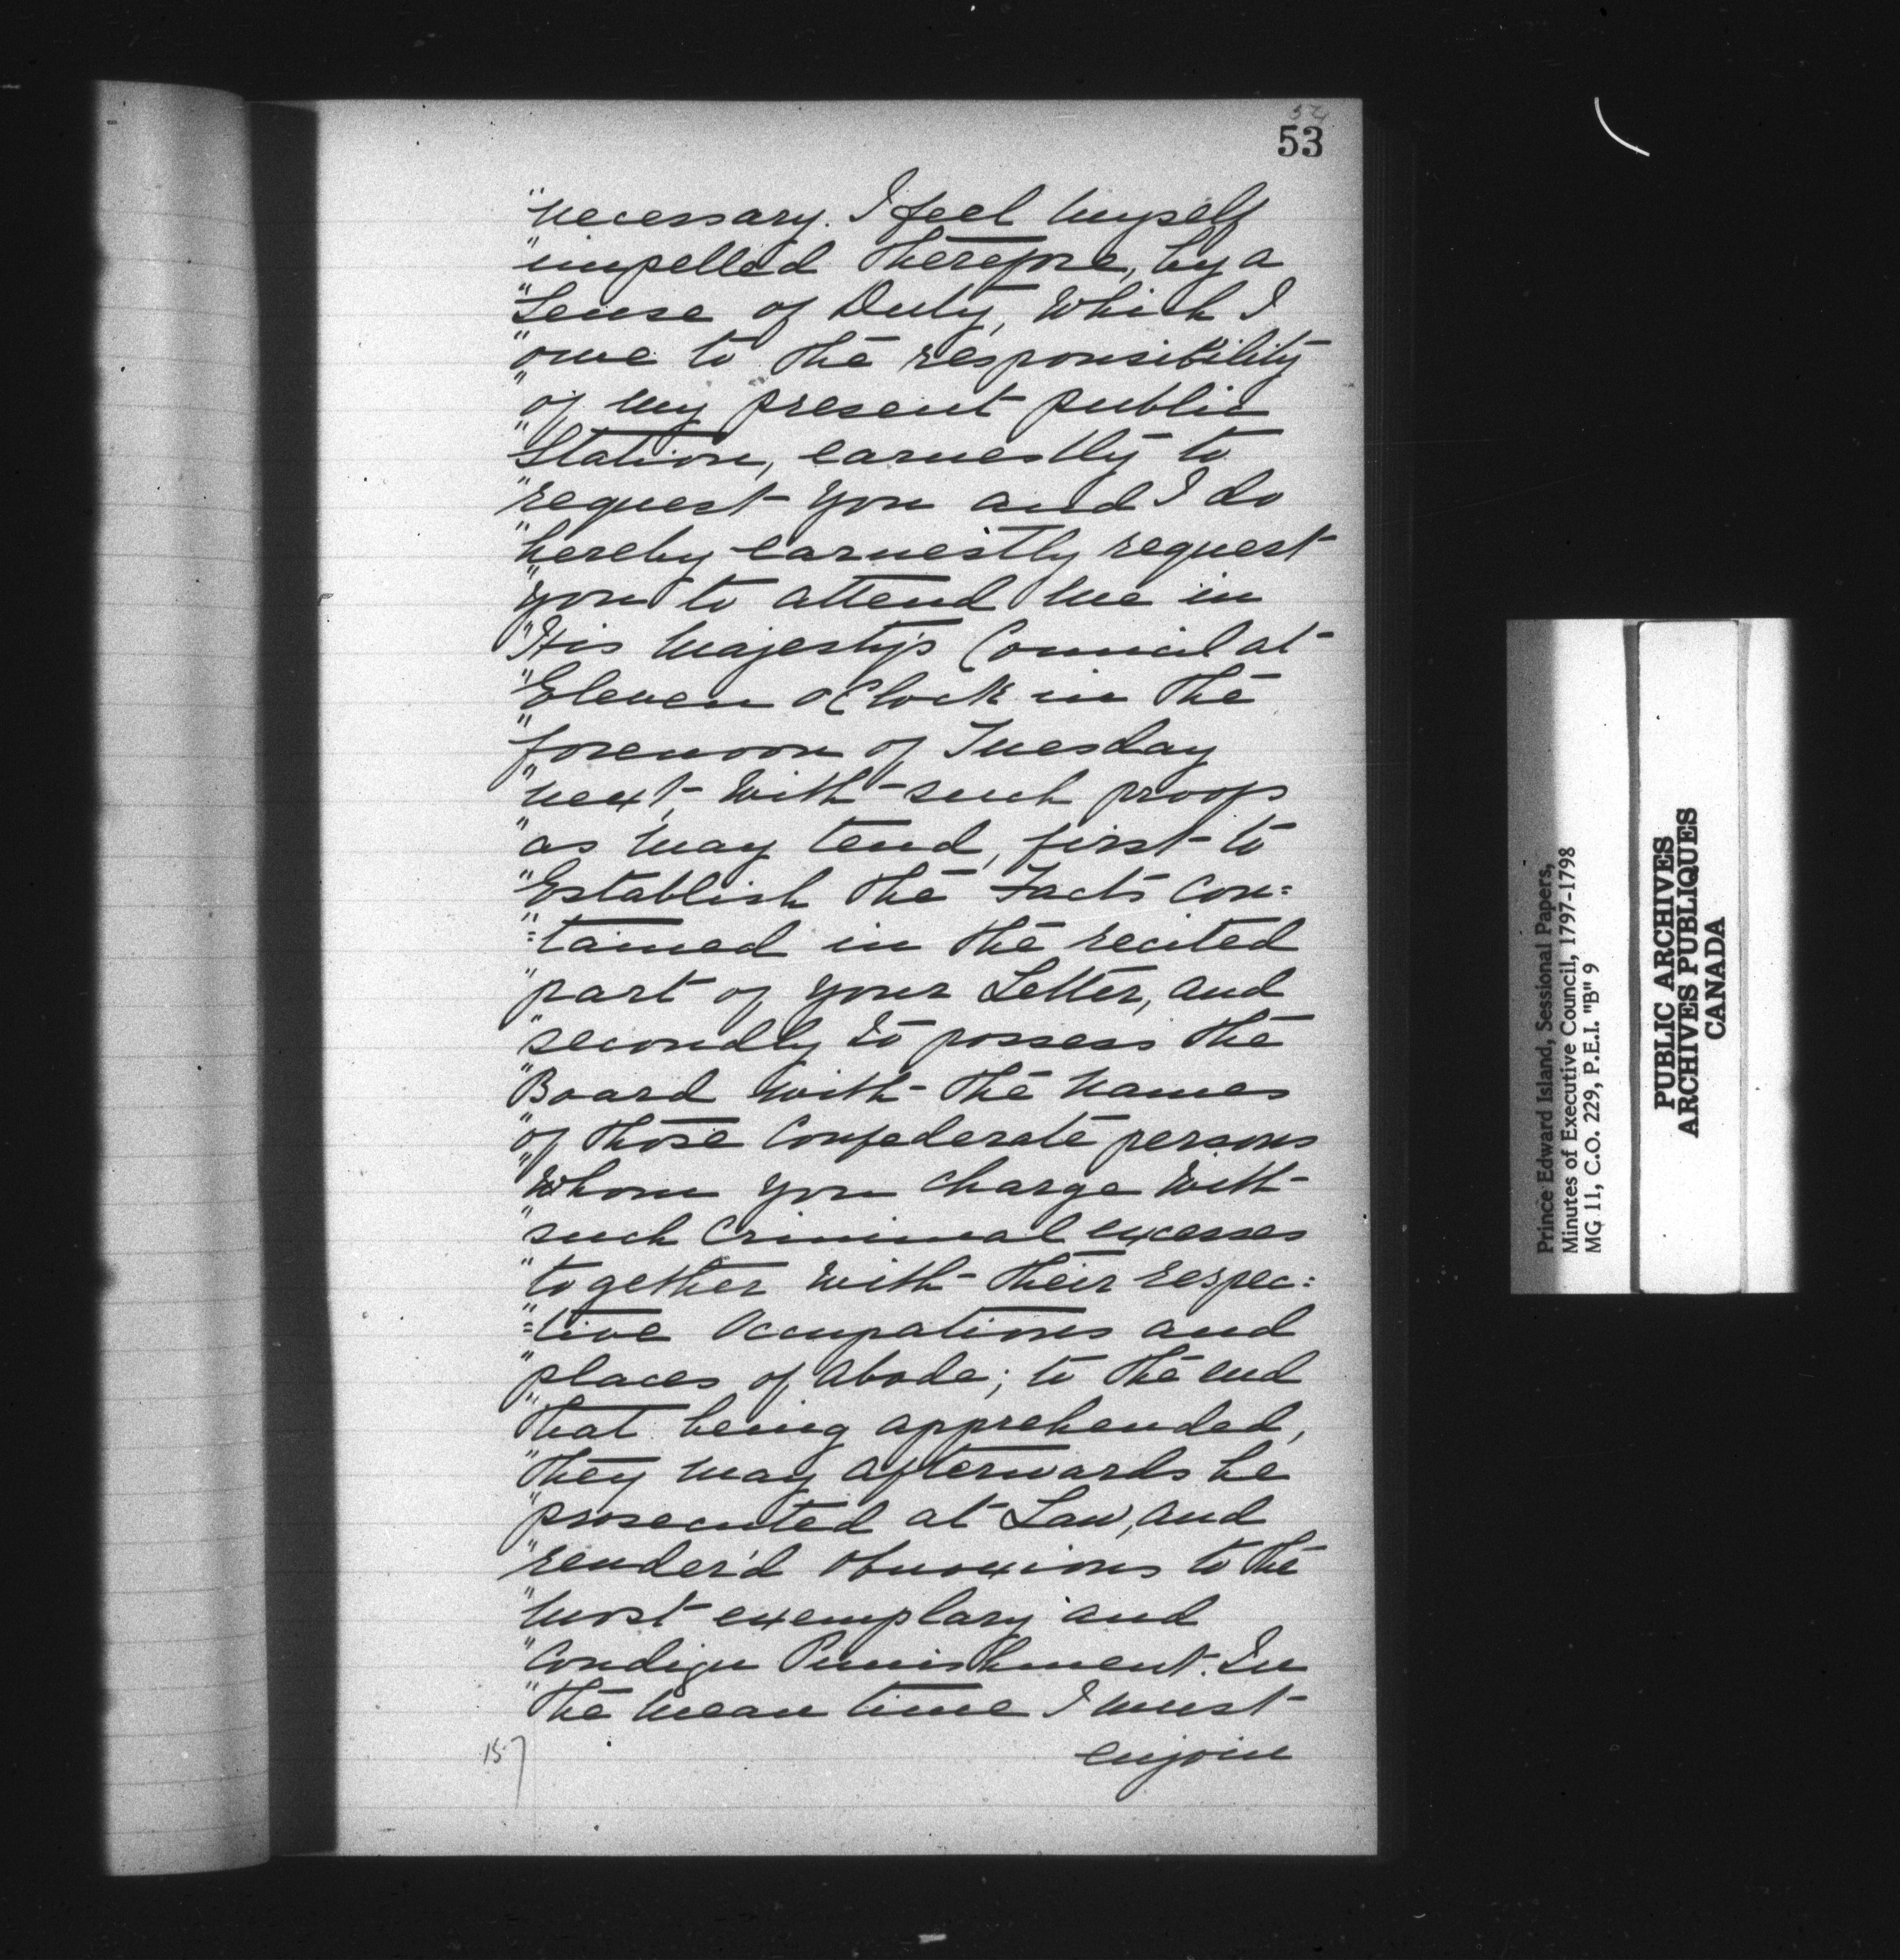 54
53
"necessary. I feel myself
"impelled therefore, by a
"Sense of Duty, Which I
"owe to the responsibility
"of my present public
"Station, earnestly to
"request you and I do
"hereby earnestly request
"you to attend me in
"His Majesty's Council at
"Eleven oClock in the
"forenoon of Tuesday
"next, With such proofs
"as may tend, first to
"Establish the Facts con=
"=tained in the recited
"part of your Letter, and
"secondly to possess the
"Board with the names
"of those Confederate persons
"Whom you charge with
"such Criminal excesses
"together with their respec=
"=tive Occupations and
"places of abode; to the end
"that being apprehended,
"they may afterwards be
"prosecuted at Law, and
"render'd obnoxious to the
"most exemplary and
"Condign Punishment. In
"the mean time I must
enjoin
157
Prince Edward Island, Sessional Papers,
Minutes of Executive Council, 1797-1798
MG 11, C.O. 229, P.E.I. "B" 9
PUBLIC ARCHIVES
ARCHIVES PUBLIQUES
CANADA